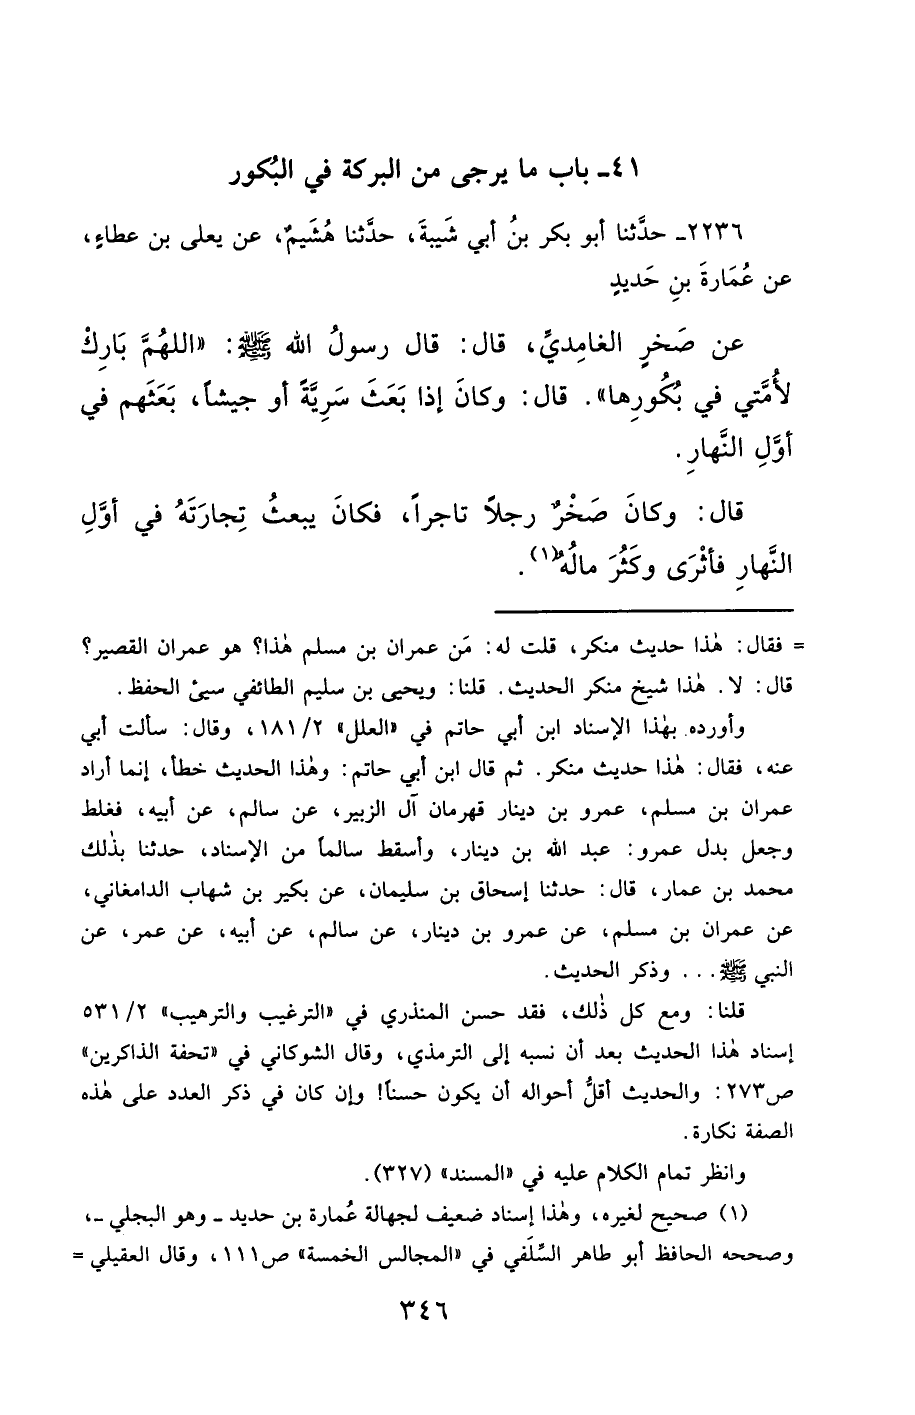 ٤١ـ باب ما يرجى من البركة في البُكور
٢٢٣٦ـ حدَّثنا أبو بكر بنُ أبي شَيبةَ، حدَّثنا هُشَيمٌ، عن يعلى بن عطاءٍ،
عن عُمَارةَ بنِ حَديدٍ
عن صَخرٍ الغامِديِّ، قال: قال رسولُ الله ﷺ: «اللهُمَّ بَارِكْ
لأُمَّتي في بُكُورِها». قال: وكانَ إذا بَعَثَ سَرِيَّةً أو جيشاً، بَعَثَهم في
أوَّلِ النَّهارِ.
قال: وكانَ صَخْرٌ رجلاً تاجراً، فكانَ يبعثُ تِجارَتَهُ في أوَّلِ
النَّهارِ فأثْرَى وكَثُرَ مالُهُ(١).
= فقال: هٰذا حديث منكر، قلت له: مَن عمران بن مسلم هٰذا؟ هو عمران القصير؟
قال: لا. هٰذا شيخ منكر الحديث. قلنا: ويحيى بن سليم الطائفي سيئ الحفظ.
وأورده بهٰذا الإسناد ابن أبي حاتم في «العلل» ٢/ ١٨١، وقال: سألت أبي
عنه، فقال: هٰذا حديث منكر. ثم قال ابن أبي حاتم: وهٰذا الحديث خطأ، إنما أراد
عمران بن مسلم، عمرو بن دينار قهرمان آل الزبير، عن سالم، عن أبيه، فغلط
وجعل بدل عمرو: عبد الله بن دينار، وأسقط سالماً من الإسناد، حدثنا بذٰلك
محمد بن عمار، قال: حدثنا إسحاق بن سليمان، عن بكير بن شهاب الدامغاني،
عن عمران بن مسلم، عن عمرو بن دينار، عن سالم، عن أبيه، عن عمر، عن
النبي ﷺ... وذكر الحديث.
قلنا: ومع كل ذٰلك، فقد حسن المنذري في «الترغيب والترهيب» ٢/ ٥٣١
إسناد هٰذا الحديث بعد أن نسبه إلى الترمذي، وقال الشوكاني في «تحفة الذاكرين»
ص٢٧٣: والحديث أقلُّ أحواله أن يكون حسناً! وإن كان في ذكر العدد على هٰذه
الصفة نكارة.
وانظر تمام الكلام عليه في «المسند» (٣٢٧).
(١) صحيح لغيره، وهٰذا إسناد ضعيف لجهالة عُمارة بن حديد ـ وهو البجلي ـ،
وصححه الحافظ أبو طاهر السِّلَفي في «المجالس الخمسة» ص١١١، وقال العقيلي =
٣٤٦